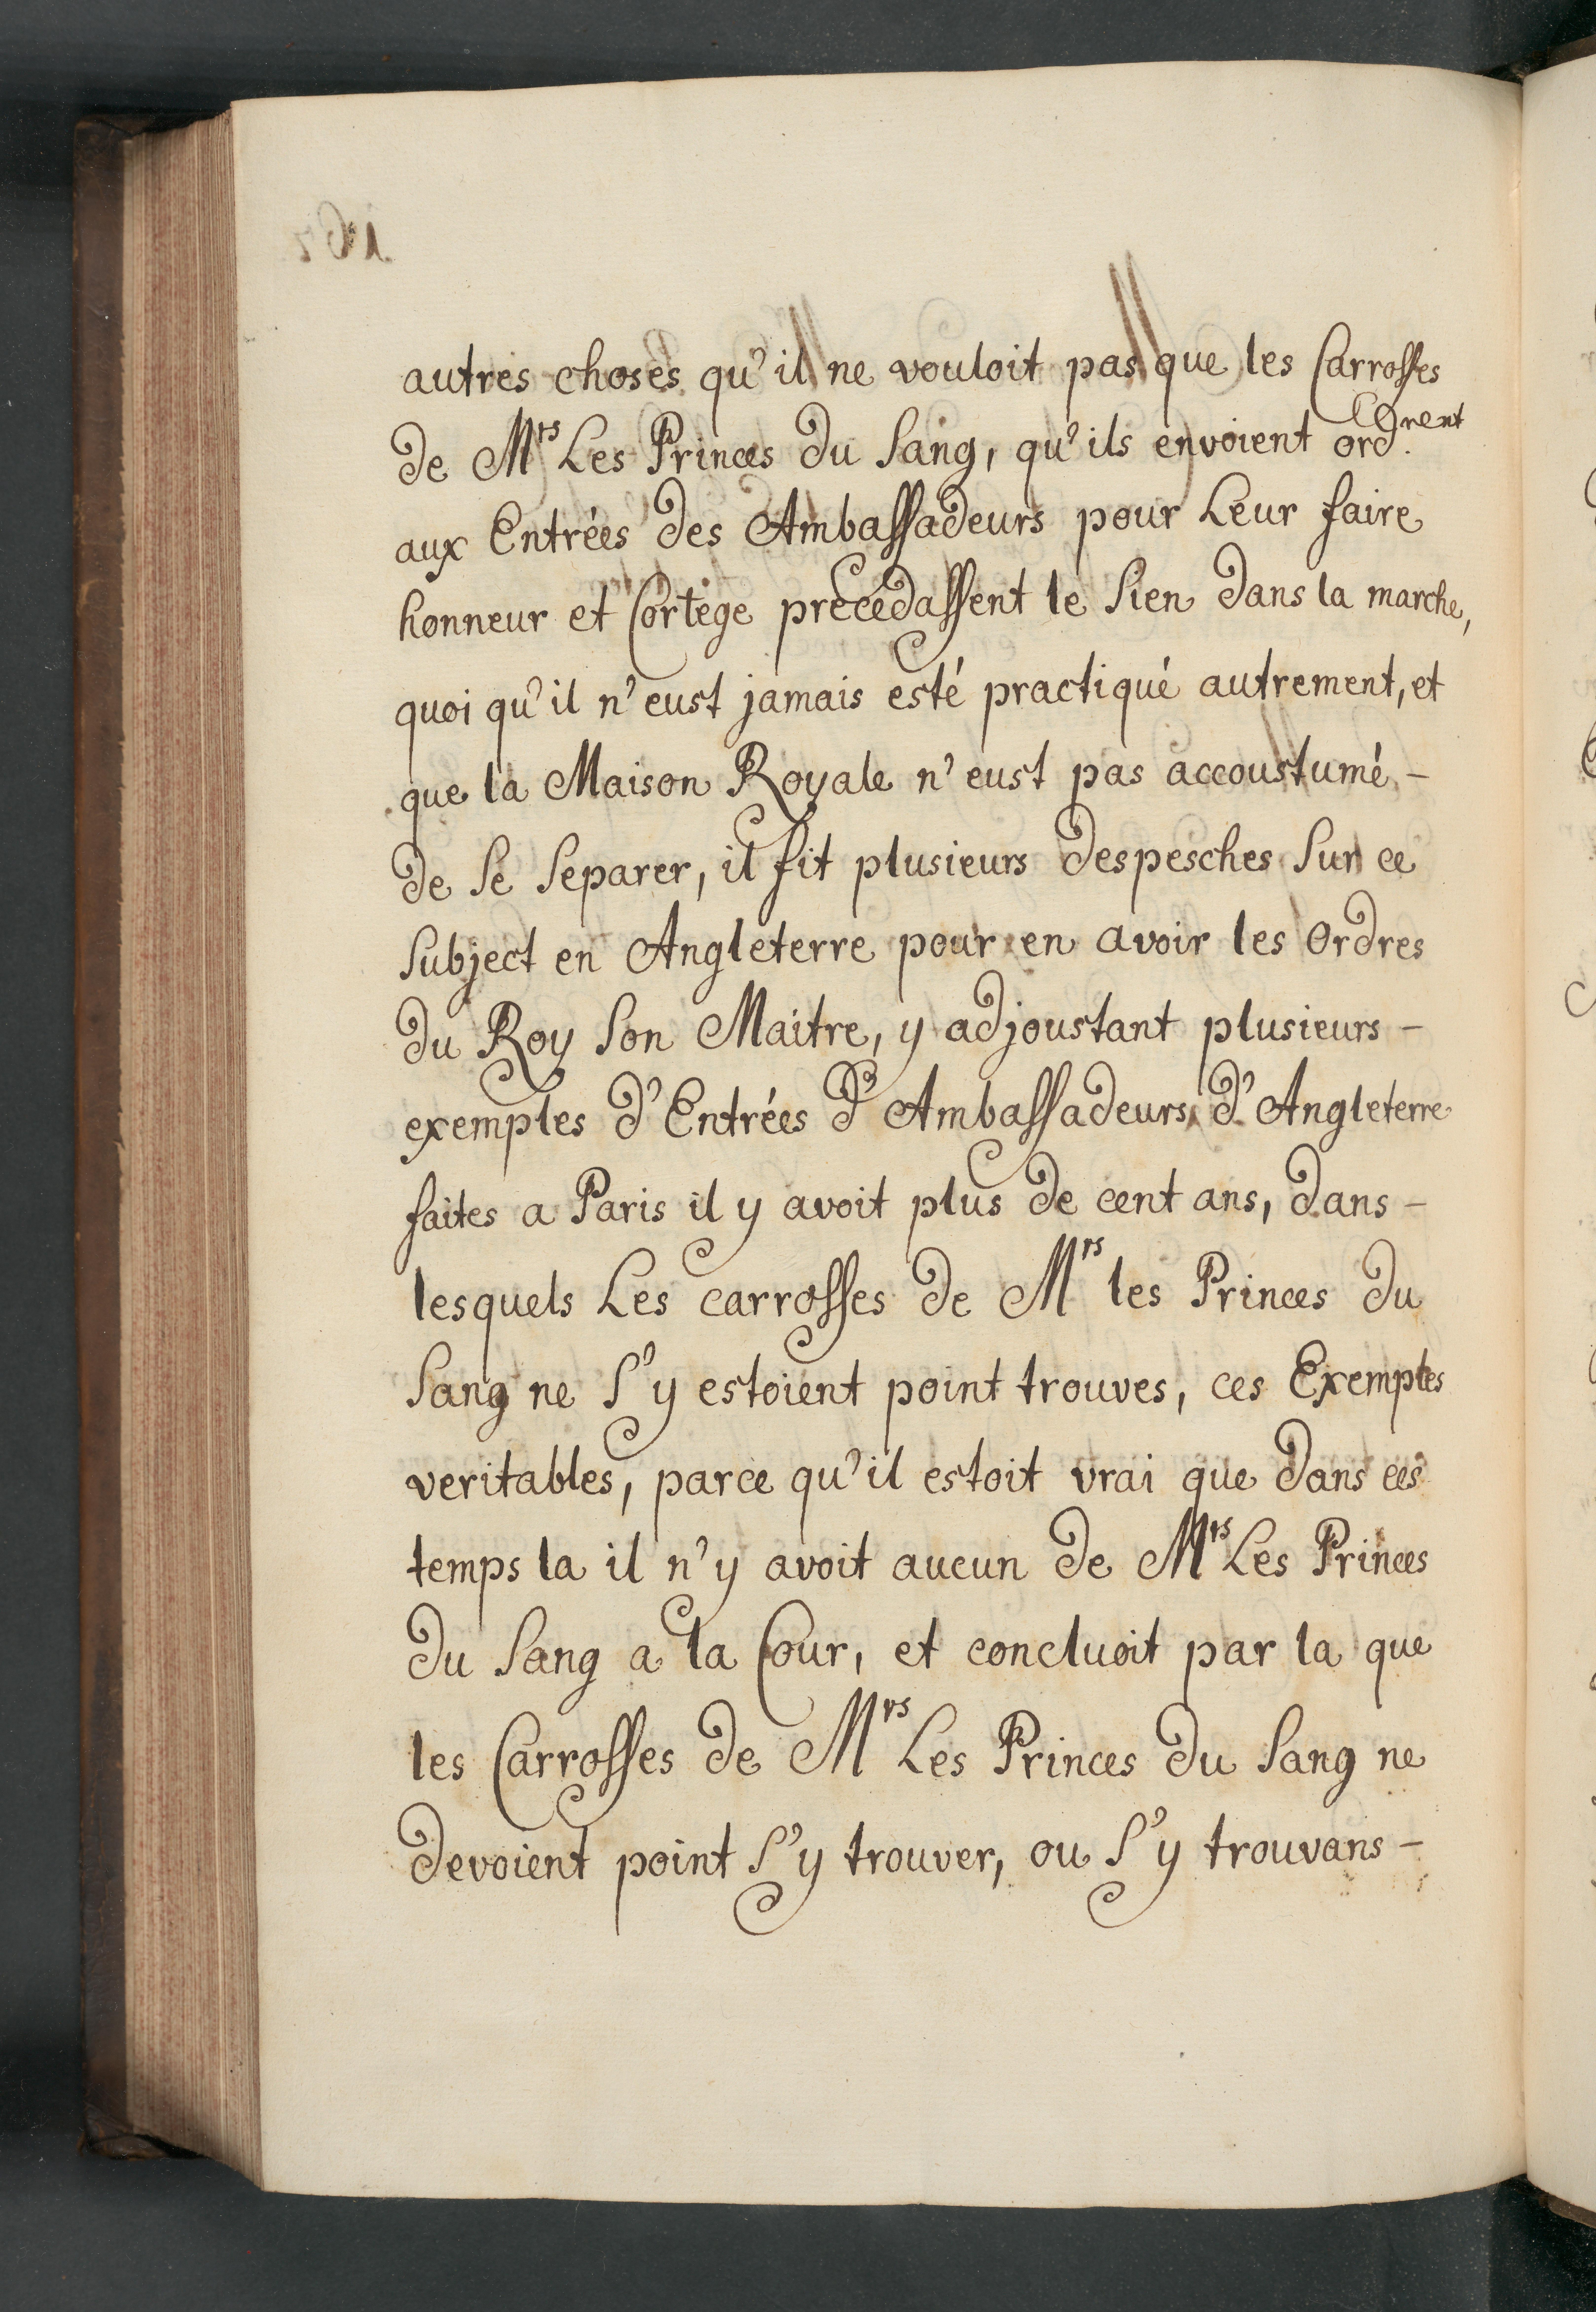 autres choses qu'il ne vouloit pas que les Carrosses
de Mrs Les Princes du Sang, qu'ils envoient ord.rent
aux Entrées des Ambassadeurs pour Leur faire
honneur et Cortège précédassent le Sien dans la marche,
quoi qu'il n'eust jamais esté practiqué autrement, et
que la Maison Royale n'eust pas accoustumé -
de Se Separer, il fit plusieurs despesches Sur ce
Subject en Angleterre pour en avoir les Ordres
du Roy Son Maitre, y adjoustant plusieurs -
exemples d'Entrées d'Ambassadeurs d'Angleterre
faites a Paris il y avoit plus de cent ans, dans -
lesquels Les carrosses de Mrs les Princes du
Sang ne S'y estoient point trouves, ces Exemples
veritables, parce qu'il estoit vrai que dans ces
temps la il n'y avoit aucun de Mrs Les Princes
du Sang a la Cour, et concluoit par la que
les Carrosses de Mrs Les Princes du Sang ne
devoient point S'y trouver, ou S'y trouvans -